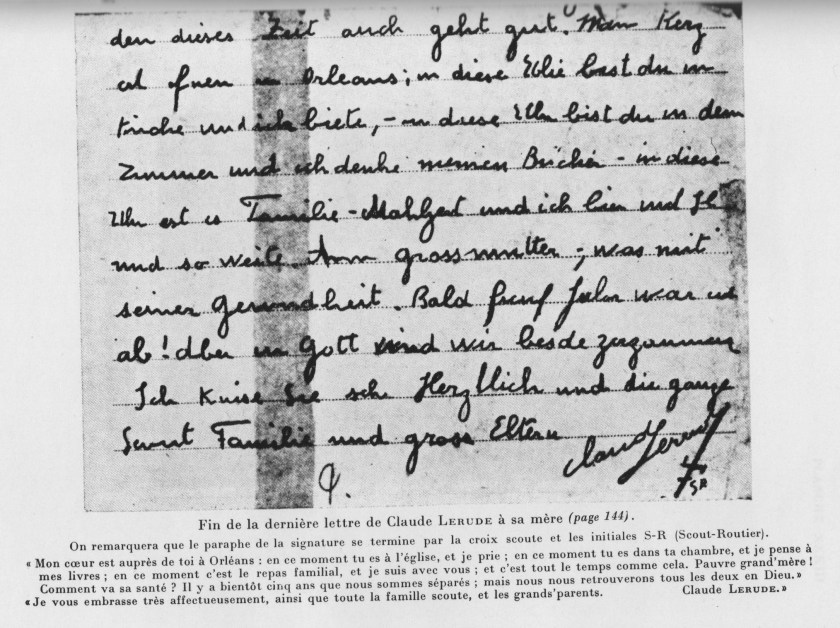 den dieses Zeit auch geht gut. Mein Herz
ist in Orleans; in diese Uhr bist du in
Kirche und ich biete, - in diese Uhr bist du in dem
Zimmer und ich denke meinen Bücher - in diese
Uhr est es Familie-Mahlzeit und ich bin mit
und so weite. Arm grossmutter; was mit
seiner gesundheit. Bald funf Jahr war
ab! Aber in Gott sind wir beide zuzammen
Ich Kusse Sie sehr Herzllich und die ganze
Scout Familie und gross Eltern
Claude Lerude
SR
Fin de la dernière lettre de Claude LERUDE à sa mère (page 144).
On remarquera que le paraphe de la signature se termine par la croix scoute et les initiales S-R (Scout-Routier).
« Mon cœur est auprès de toi à Orléans : en ce moment tu es à l'église, et je prie ; en ce moment tu es dans ta chambre, et je pense à
mes livres ; en ce moment c'est le repas familial, et je suis avec vous ; et c'est tout le temps comme cela. Pauvre grand'mère !
Comment va sa santé ? Il y a bientôt cinq ans que nous sommes séparés ; mais nous nous retrouverons tous les deux en Dieu.»
«Je vous embrasse très affectueusement, ainsi que toute la famille scoute, et les grands'parents. Claude LERUDE.»